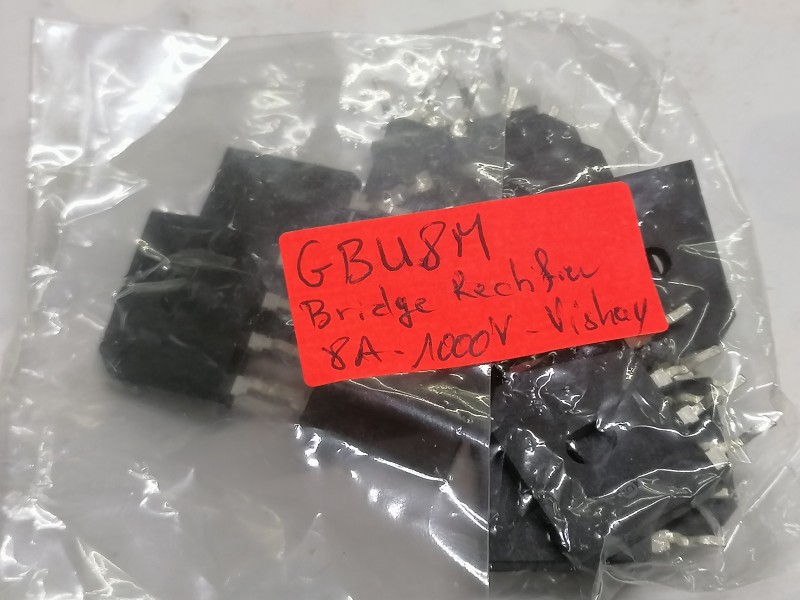 GBU8M
Bridge Rectifier
8A - 1000V - Vishay